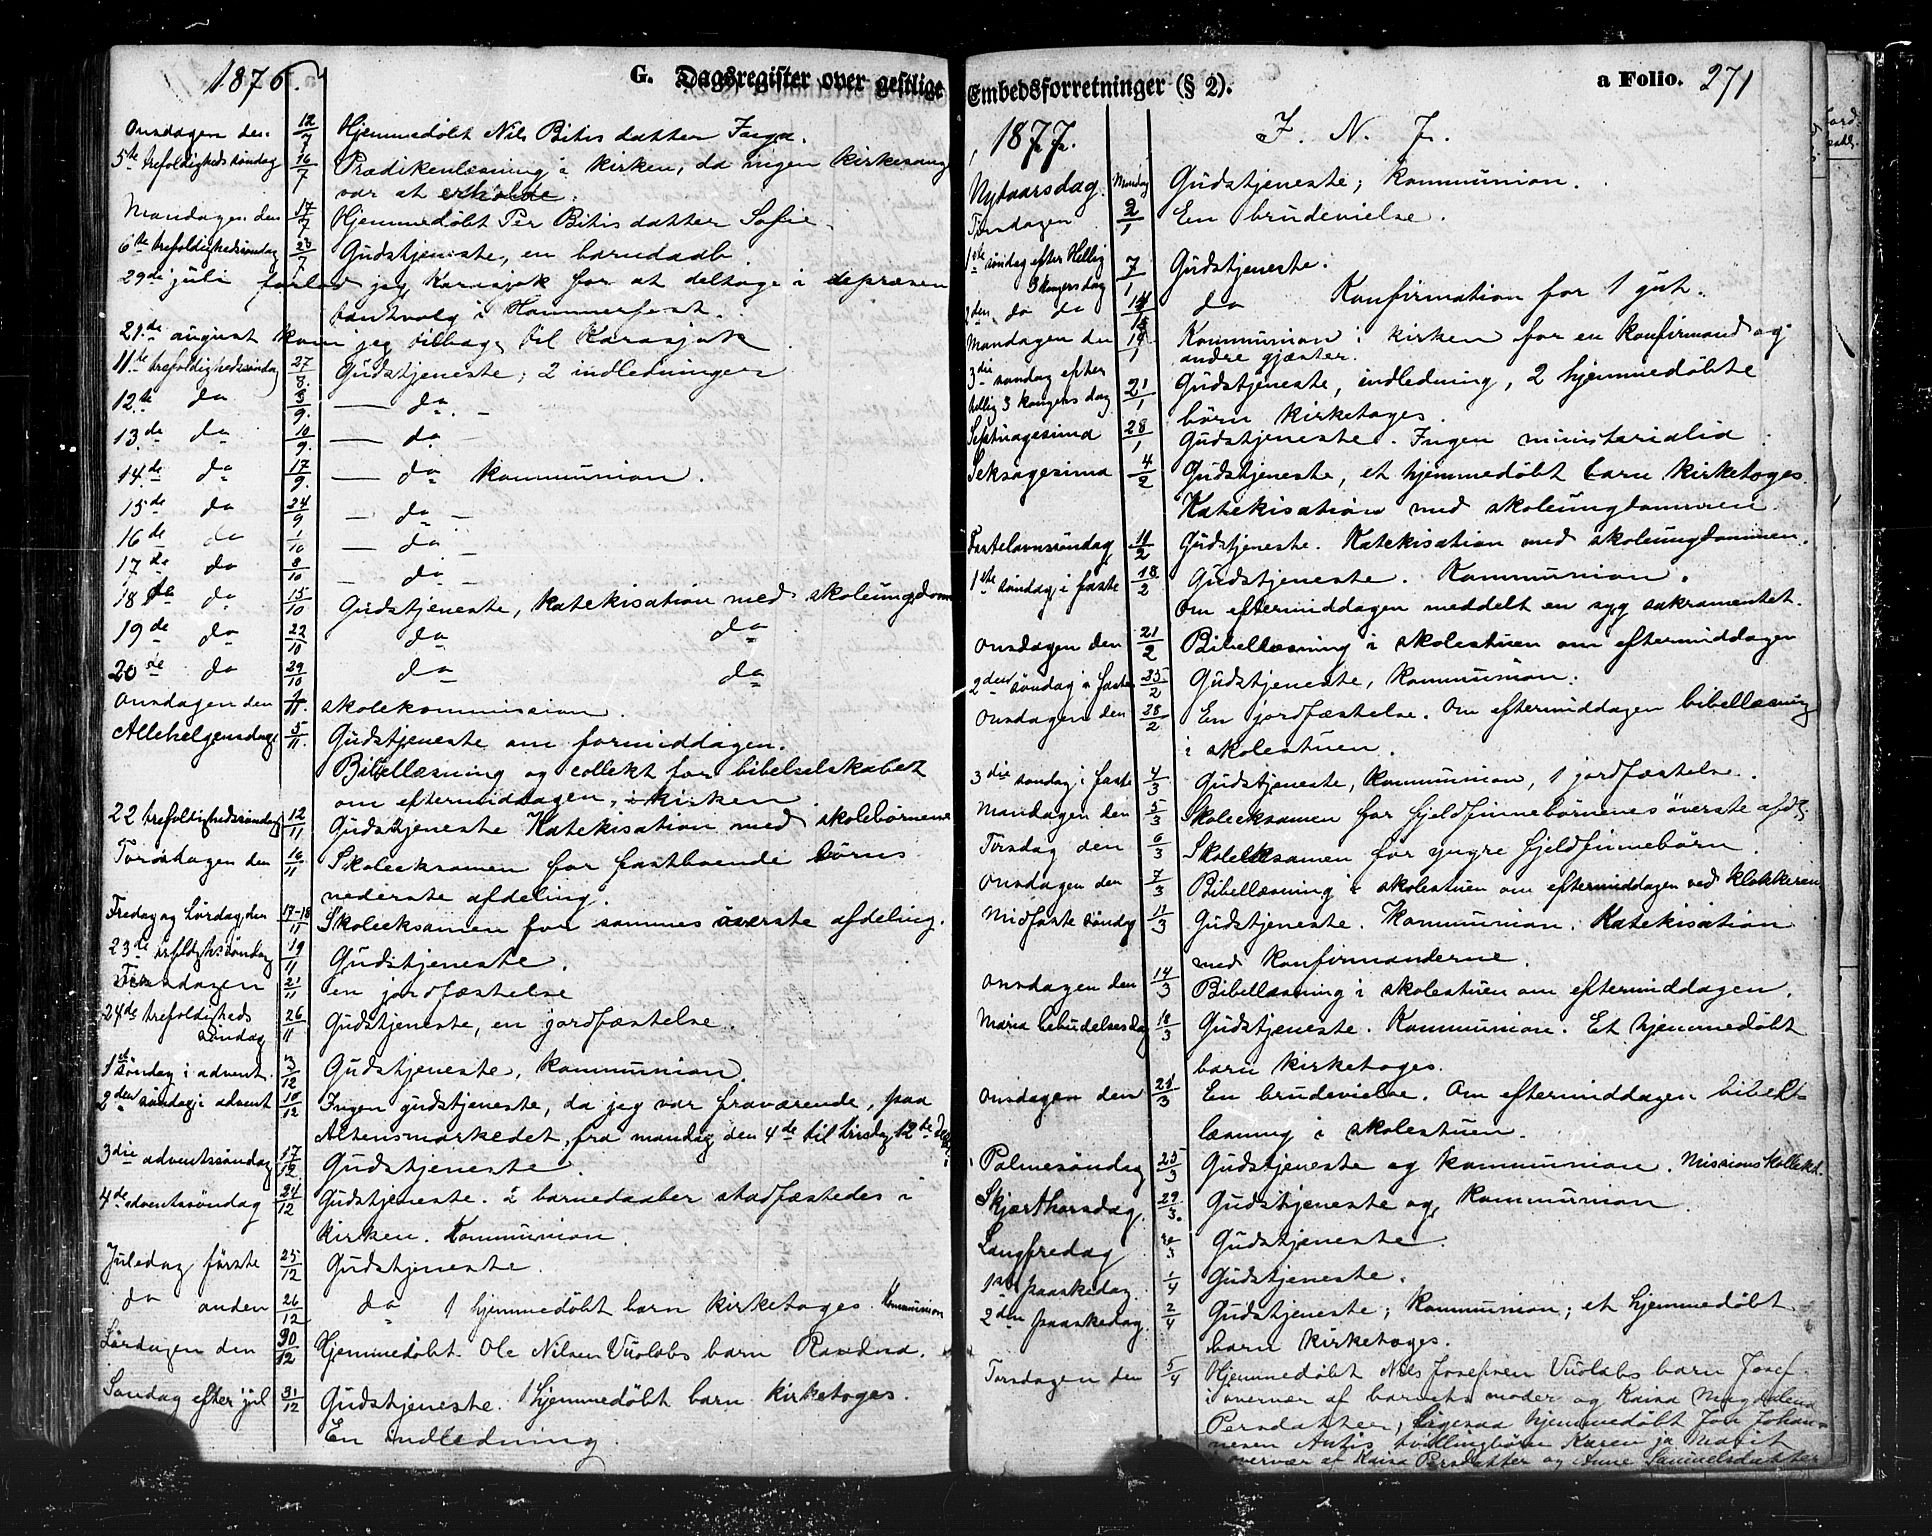 1876.
G. Dagsregister over gestlige
Onsdagen den 12/7 Hjemmedöbt Nils Bitis datter Inga.
5te trefoldigheds söndag 16/7 Prædikenlæsning i kirken, da ingen kirkesang
var at erholde.
Mandagen den 17/7 Hjemmedöbt Per Bitis datter Sofie.
6te trefoldighedssöndag 23/7 Gudstjeneste, en barnedaab.
29de juli forlod jeg Karasjok for at deltage i repræsen
tantvalg i Hammerfest.
21de august kom jeg tilbage til Karasjok
11te trefoldighedssöndag 27/8. Gudstjeneste; 2 indledninger
12te do 3/9. — do —
13de do 10/9. — do —
14de do 17/9. — do kommunion.
15de do 24/9 — do —
16de do 1/10 — do —
17de do 8/10 — do —
18de do 15/10 Gudstjeneste, katekisation med skoleungdom
19de do 22/10 do do
20de do 29/10 do do
Onsdagen den 1/11. skolekommission.
Allehelgensdag 5/11. Gudstjeneste om formiddagen.
Bibellæsning og collekt for bibelselskabet
om eftermiddagen, i kirken.
22 trefoldighedssöndag 12/11 Gudstjeneste Katekisation med skolebörnene
Torsdagen den 16/11 Skoleeksamen for fastboende börns
nederste afdeling.
Fredag og Lördag den 17-18/11 Skoleeksamen for sammes överste afdeling.
23de trfldghs söndag 19/11 Gudstjeneste.
Tirsdagen 21/11 en jordfæstelse
24de trefoldigheds
söndag 26/11 Gudstjeneste, en jordfæstelse.
1ste söndag i advent. 3/12 Gudstjeneste, kommunion.
2den söndag i advent 10/12 Ingen gudstjeneste, da jeg var fraværende, paa
Altensmarkedet, fra mandag den 4de til tirsdag 12te
3die adventssöndag 17/12 Gudstjeneste.
4de adventssöndag 24/12 Gudstjeneste. 2 barnedaaber stadfæstedes i
kirken. Kommunion.
Juledag förste 25/12 Gudstjeneste.
do anden 26/12 do 1 hjemmedöbt barn kirketoges. Kommunion
Lördagen den 30/12 Hjemmedöbt Ole Nilsen Vuolabs barn Ravdna.
Söndag efter jul 31/12 Gudstjeneste. 1 hjemmedöbt barn kirketoges.
En indledning.
Embedsforretninger (§ 2). a Folio. 271
1877. I. N. J.
Nytaarsdag. Mandag 1 Gudstjeneste; kommunion.
Tirsdagen 2/1 En brudevielse.
1ste söndag efter Hellig
3 kongers dag 7/1 Gudstjeneste.
2den do do 14/1 do Konfirmation for 1 gut.
Mandagen den 15/1 Kommunion i kirken for en konfirmand og
andre gjæster.
3die söndag efter
hellig 3 kongers dag 21/1 Gudstjeneste, indledning, 2 hjemmedöbte
börn kirketoges.
Septuagesima 28/1 Gudstjeneste. Ingen ministerialia.
Seksagesima 4/2 Gudstjeneste, et hjemmedöbt barn kirketoges.
Katekisation med skoleungdommen.
Fastelavnssöndag 11/2 Gudstjeneste. Katekisation med skoleungdommen.
1ste söndag i faste 18/2 Gudstjeneste. Kommunion.
Om eftermiddagen meddelt en syg sakramentet.
Onsdagen den 21/2 Bibellæsning i skolestuen om eftermiddagen
2den söndag i faste 25/2 Gudstjeneste, kommunion.
Onsdagen den 28/2 En jordfæstelse. Om eftermiddagen bibellæsning
i skolestuen.
3die söndag i faste 4/3 Gudstjeneste, kommunion, 1 jordfæstelse.
Mandagen den 5/3 Skoleeksamen for fjeldfinnebörnenes överste afdl.
Tirsdag den 6/3 Skoleeksamen for yngre fjeldfinnebörn.
Onsdagen den 7/3 Bibellæsning i skolestuen om eftermiddagen ved klokkeren
Midfaste söndag 11/3 Gudstjeneste. Kommunion. Katekisation
med konfirmanderne.
Onsdagen den 14/3 Bibellæsning i skolestuen om eftermiddagen.
Maria bebudelsesdag 18/3 Gudstjeneste. Kommunion. Et hjemmedöbt
barn kirketoges.
Onsdagen den 21/3 En brudevielse. Om eftermiddagen bibel-
læsning i skolestuen.
Palmesöndag 25/3 Gudstjeneste og kommunion. Missionskollekt.
Skjærthorsdag. 29/3. Gudstjeneste og kommunion.
Langfredag 30/3 Gudstjeneste
1ste paaskedag. 1/4 Gudstjeneste.
2den paaskedag. 2/4 Gudstjeneste; kommunion; et hjemmedöbt
barn kirketoges.
Torsdagen den 5/4 Hjemmedöbt Nils Josefsen Vuolabs barn Josef
i overvær af barnets moder og Kaisa Magdalena
Persdatter, ligesaa hjemmedöbt Jon Johan-
nesen Antis tvillingbörn Karen ja Marit
overvær af Kaisa Persdatter og Anne Samuelsdatter